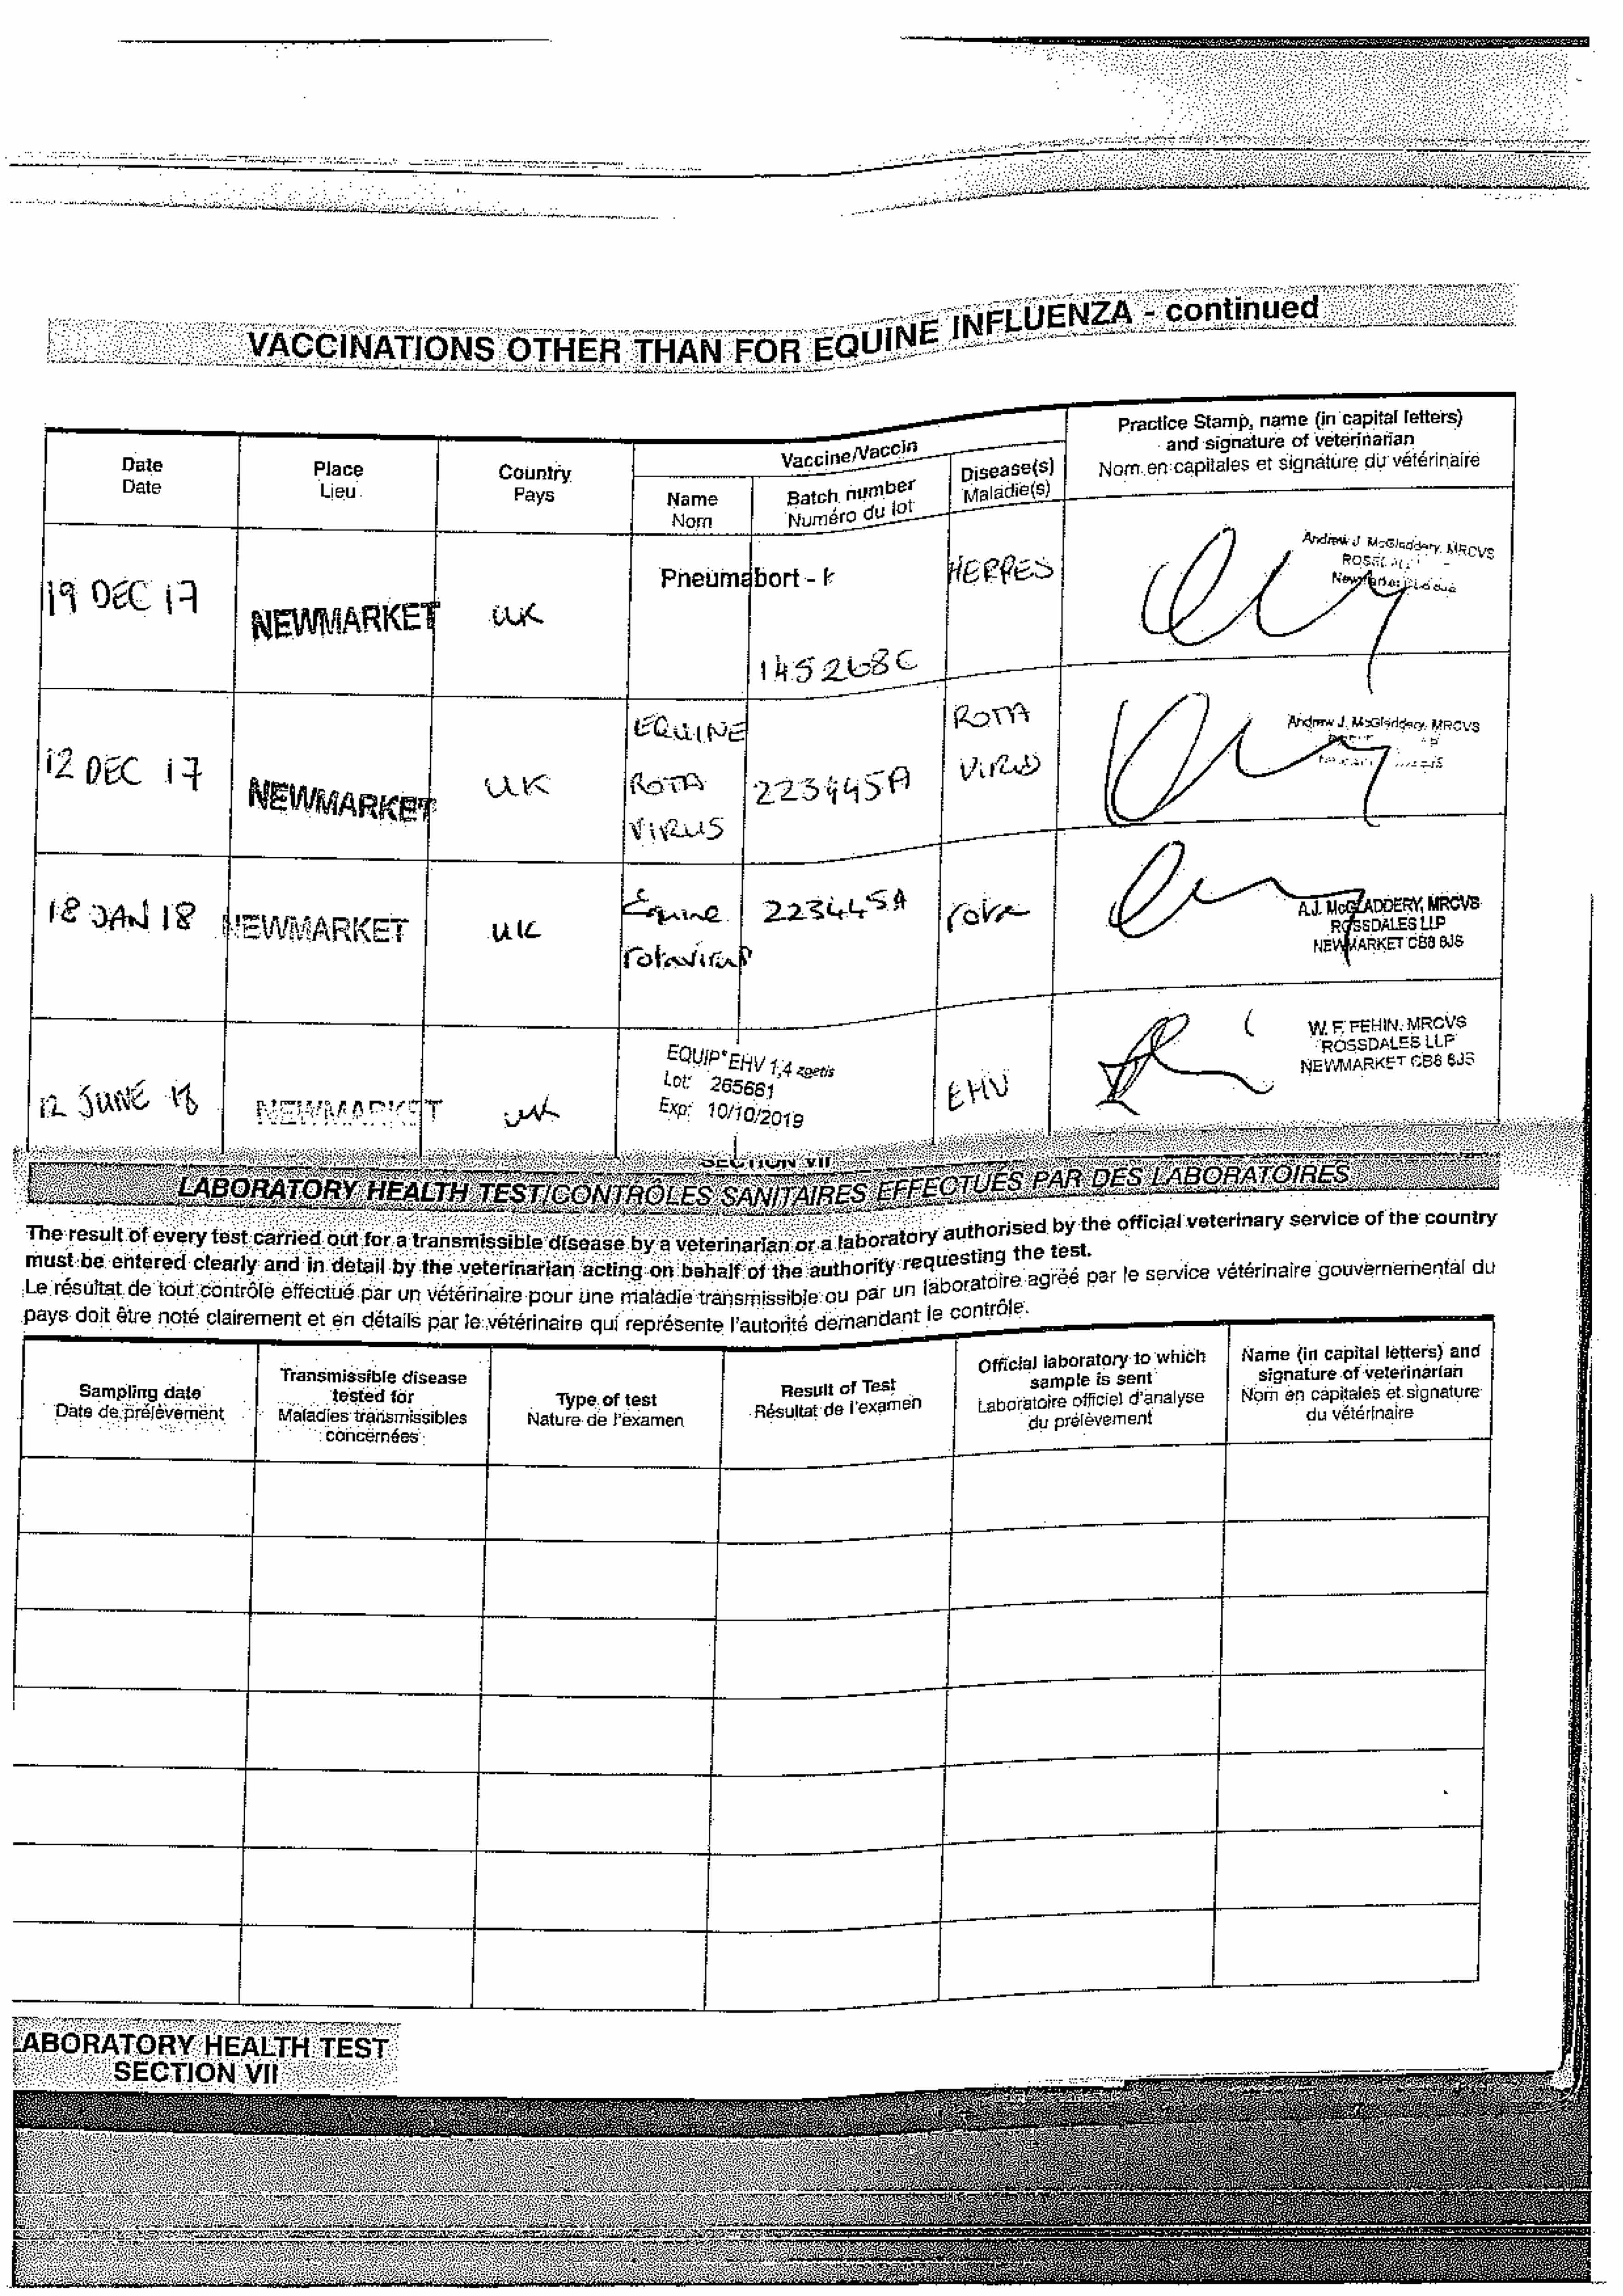 VACCINATIONS OTHER THAN FOR EQUINE INFLUENZA - continued
Date
Date
Place
Lieu
Country
Pays
Vaccine/Vaccin
Name
Nom
Batch number
Numéro du lot
Disease(s)
Maladie(s)
Practice Stamp, name (in capital letters)
and signature of veterinarian
Nom en capitales et signature du vétérinaire
19 DEC 17
NEWMARKET
UK
Pneumabort -
145268C
HERPES
Andrew J. McGladdery, MRCVS
12 DEC 17
NEWMARKET
UK
EQUINE
ROTA
VIRUS
223445A
ROTA
VIRUS
Andrew J. McGladdery, MRCVS
18 JAN 18
NEWMARKET
UK
Equine
rotavirus
223445A
rota
A.J. McGLADDERY, MRCVS
ROSSDALES LLP
NEWMARKET CB8 8JS
12 JUNE 18
NEWMARKET
UK
EQUIP EHV 1,4 zoetis
Lot: 265661
Exp: 10/10/2019
EHV
W. F. FEHIN, MRCVS
ROSSDALES LLP
NEWMARKET CB8 8JS
SECTION VII
LABORATORY HEALTH TEST/CONTRÔLES SANITAIRES EFFECTUÉS PAR DES LABORATOIRES
The result of every test carried out for a transmissible disease by a veterinarian or a laboratory authorised by the official veterinary service of the country
must be entered clearly and in detail by the veterinarian acting on behalf of the authority requesting the test.
Le résultat de tout contrôle effectué par un vétérinaire pour une maladie transmissible ou par un laboratoire agréé par le service vétérinaire gouvernemental du
pays doit être noté clairement et en détails par le vétérinaire qui représente l'autorité demandant le contrôle.
Sampling date
Date de prélèvement
Transmissible disease
tested for
Maladies transmissibles
concernées
Type of test
Nature de l'examen
Result of Test
Résultat de l'examen
Official laboratory to which
sample is sent
Laboratoire officiel d'analyse
du prélèvement
Name (in capital letters) and
signature of veterinarian
Nom en capitales et signature
du vétérinaire
LABORATORY HEALTH TEST
SECTION VII